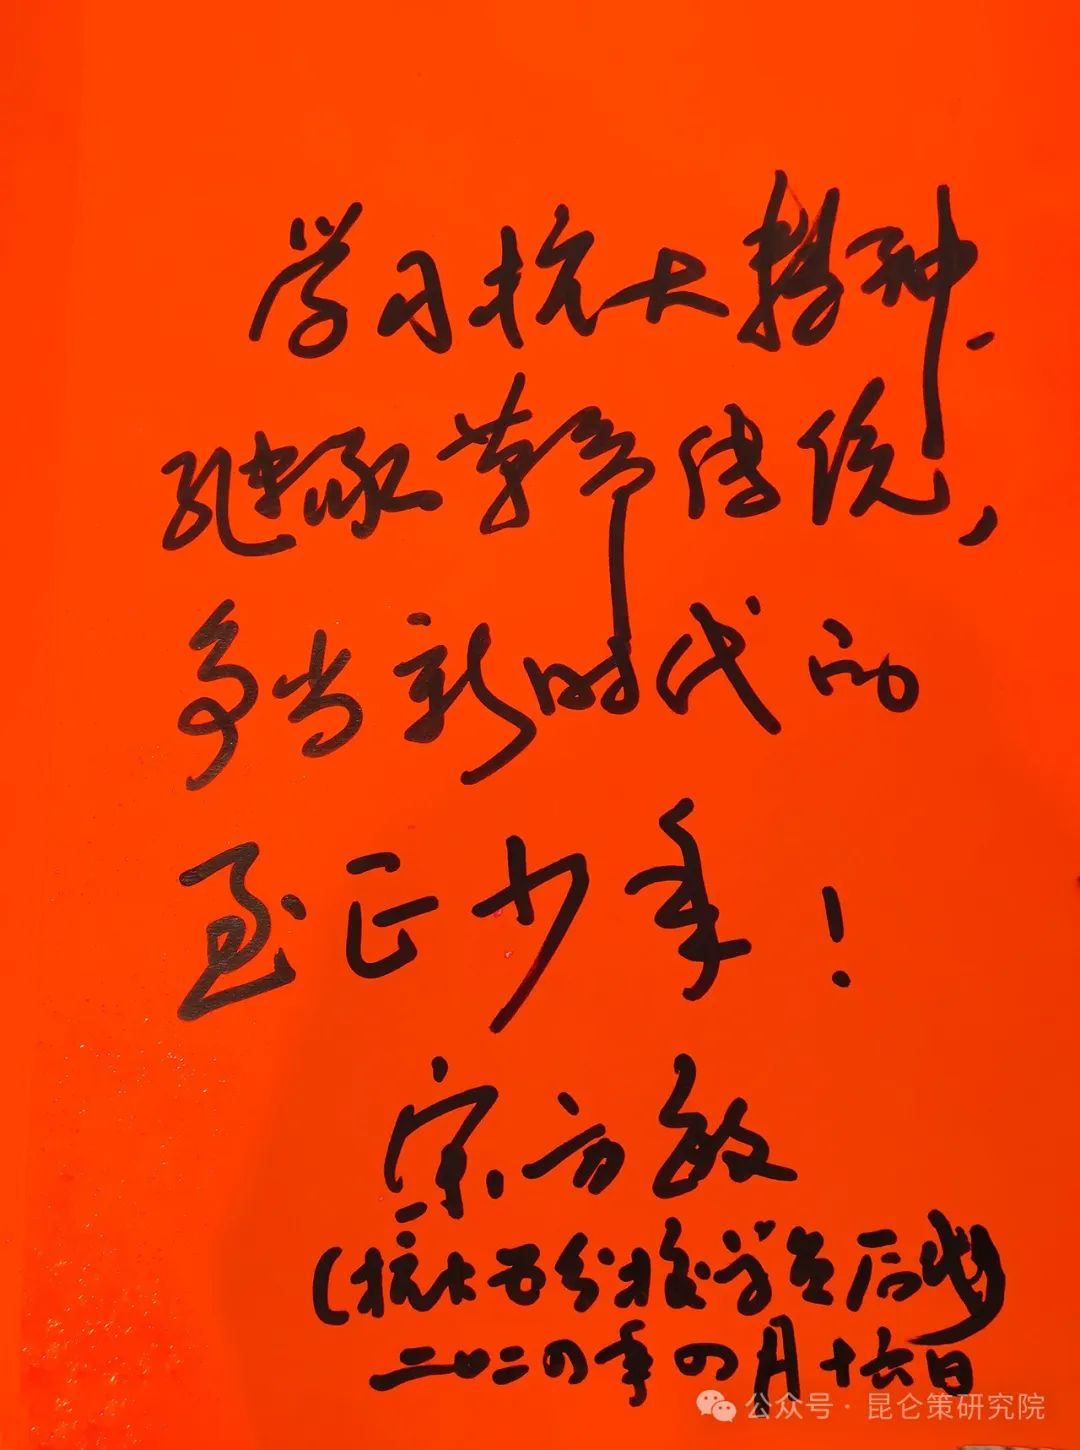 学习抗大精神、
继承革命传统，
争当新时代的
至正少年！
宋方敏
（抗大五分校学员后代）
二〇二四年四月十六日
公众号·昆仑策研究院